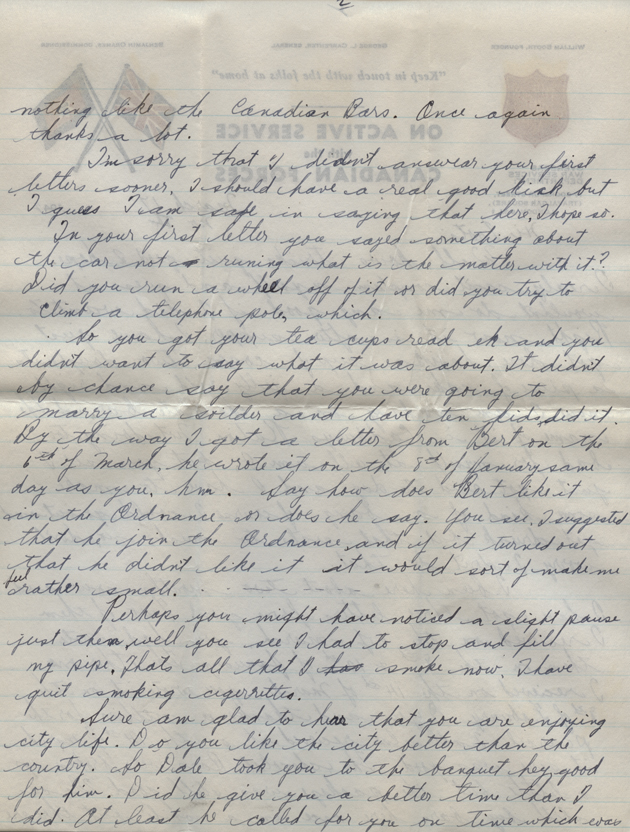 2
nothing like the Canadian Bars. Once again
thanks a lot.
I'm sorry that I didn't answear your first
letters sooner. I should have a real good kick but
I guess I am safe in saying that here, I hope so.
In your first letter you sayed something about
the car not runing what is the matter with it?
Did you run a wheel off of it or did you try to
climb a telephone pole, which.
So you got your tea cups read eh and you
didn't want to say what it was about. It didn't
by chance say that you were going to
marry a soilder and have ten kids, did it.
By the way I got a letter from Bert on the
6th of March, he wrote it on the 8th of January same
day as you, hm. Say how does Bert like it
in the Ordnance or does he say. You see, I suggested
that he join the Ordnance, and if it turned out
that he didn't like it it would sort of make me
feel
rather small. . - - - - - -
Perhaps you might have noticed a slight pause
just then, well you see I had to stop and fill
my pipe. Thats all that I smoke now. I have
quit smoking cigerrettes.
Sure am glad to hear that you are enjoying
city life. Do you like the city better than the
country. So Dale took you to the banquet hey, good
for him. Did he give you a better time than I
did. At least he called for you on time which was
WILLIAM BOOTH, FOUNDER
GEORGE L. CARPENTER, GENERAL
BENJAMIN ORAMES, COMMISSIONER
"Keep in touch with the folks at home"
ON ACTIVE SERVICE
with the
CANADIAN FORCES